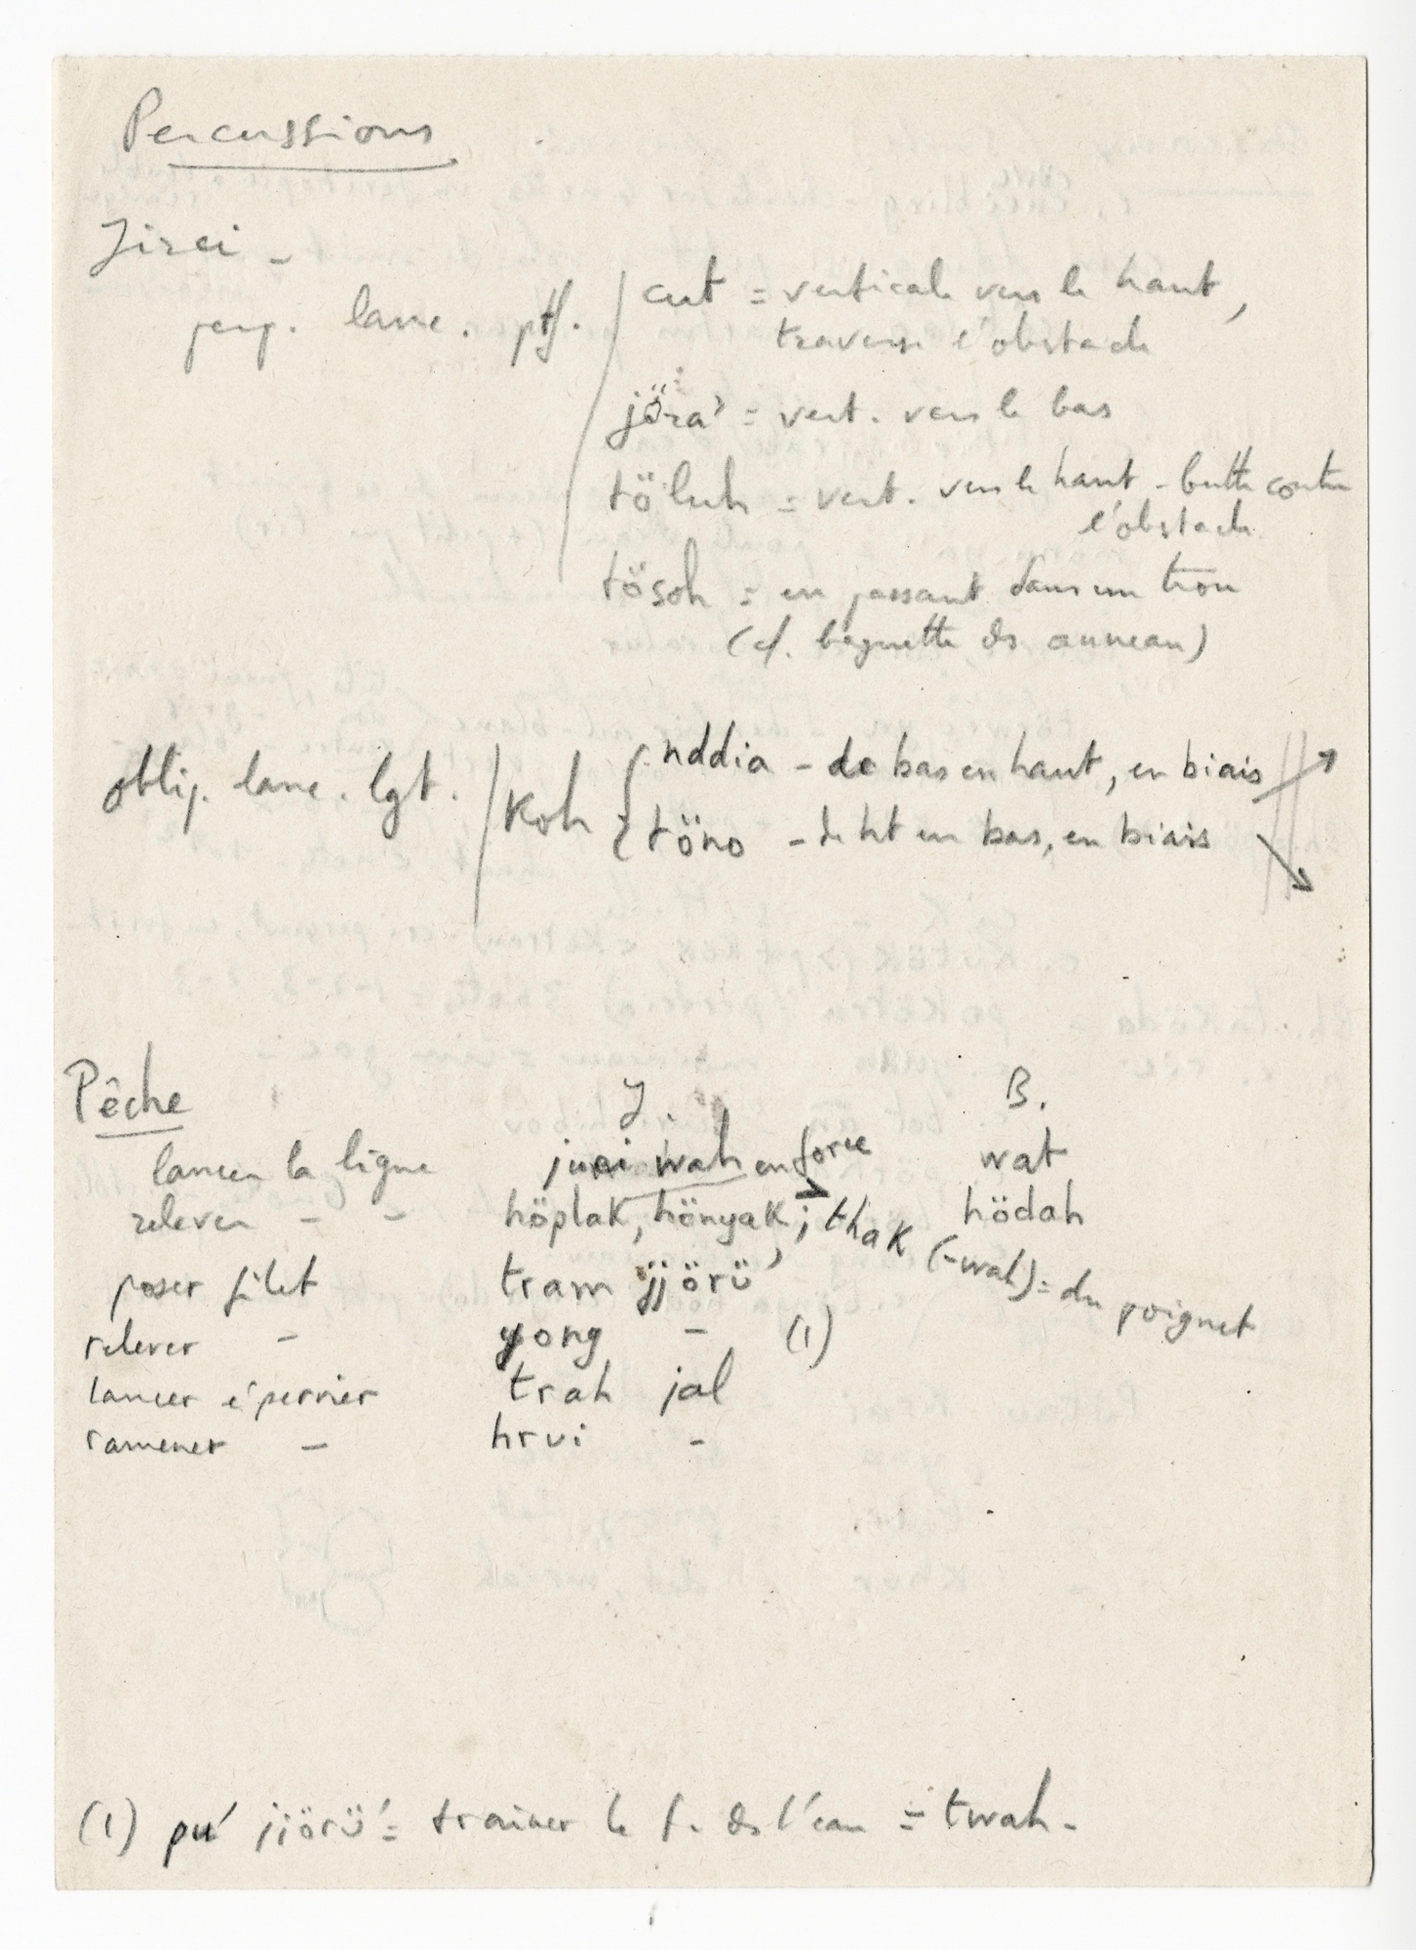 Percussions
Jirei -
perp. lanc. ptf. / cut = verticale vers le haut,
traverse l'obstacle
jöra' = vert. vers le bas
töluh = vert. vers le haut - butte contre
l'obstacle
tösoh = en passant dans un trou
(cf. baguette ds anneau)
obliq. lanc. lgt. / Koh { nddia - de bas en haut, en biais
töno - de ht en bas, en biais
Pêche J. B.
lancer la ligne wah en force wat
relever - - höplak, hönyak ; thak (-wal) = du poignet hödah
poser filet tram jjörü'
relever - yong - (1)
lancer épervier trah jal
ramener - hrui -
(1) pu' jjörü' = trainer le f. ds l'eau = twah -